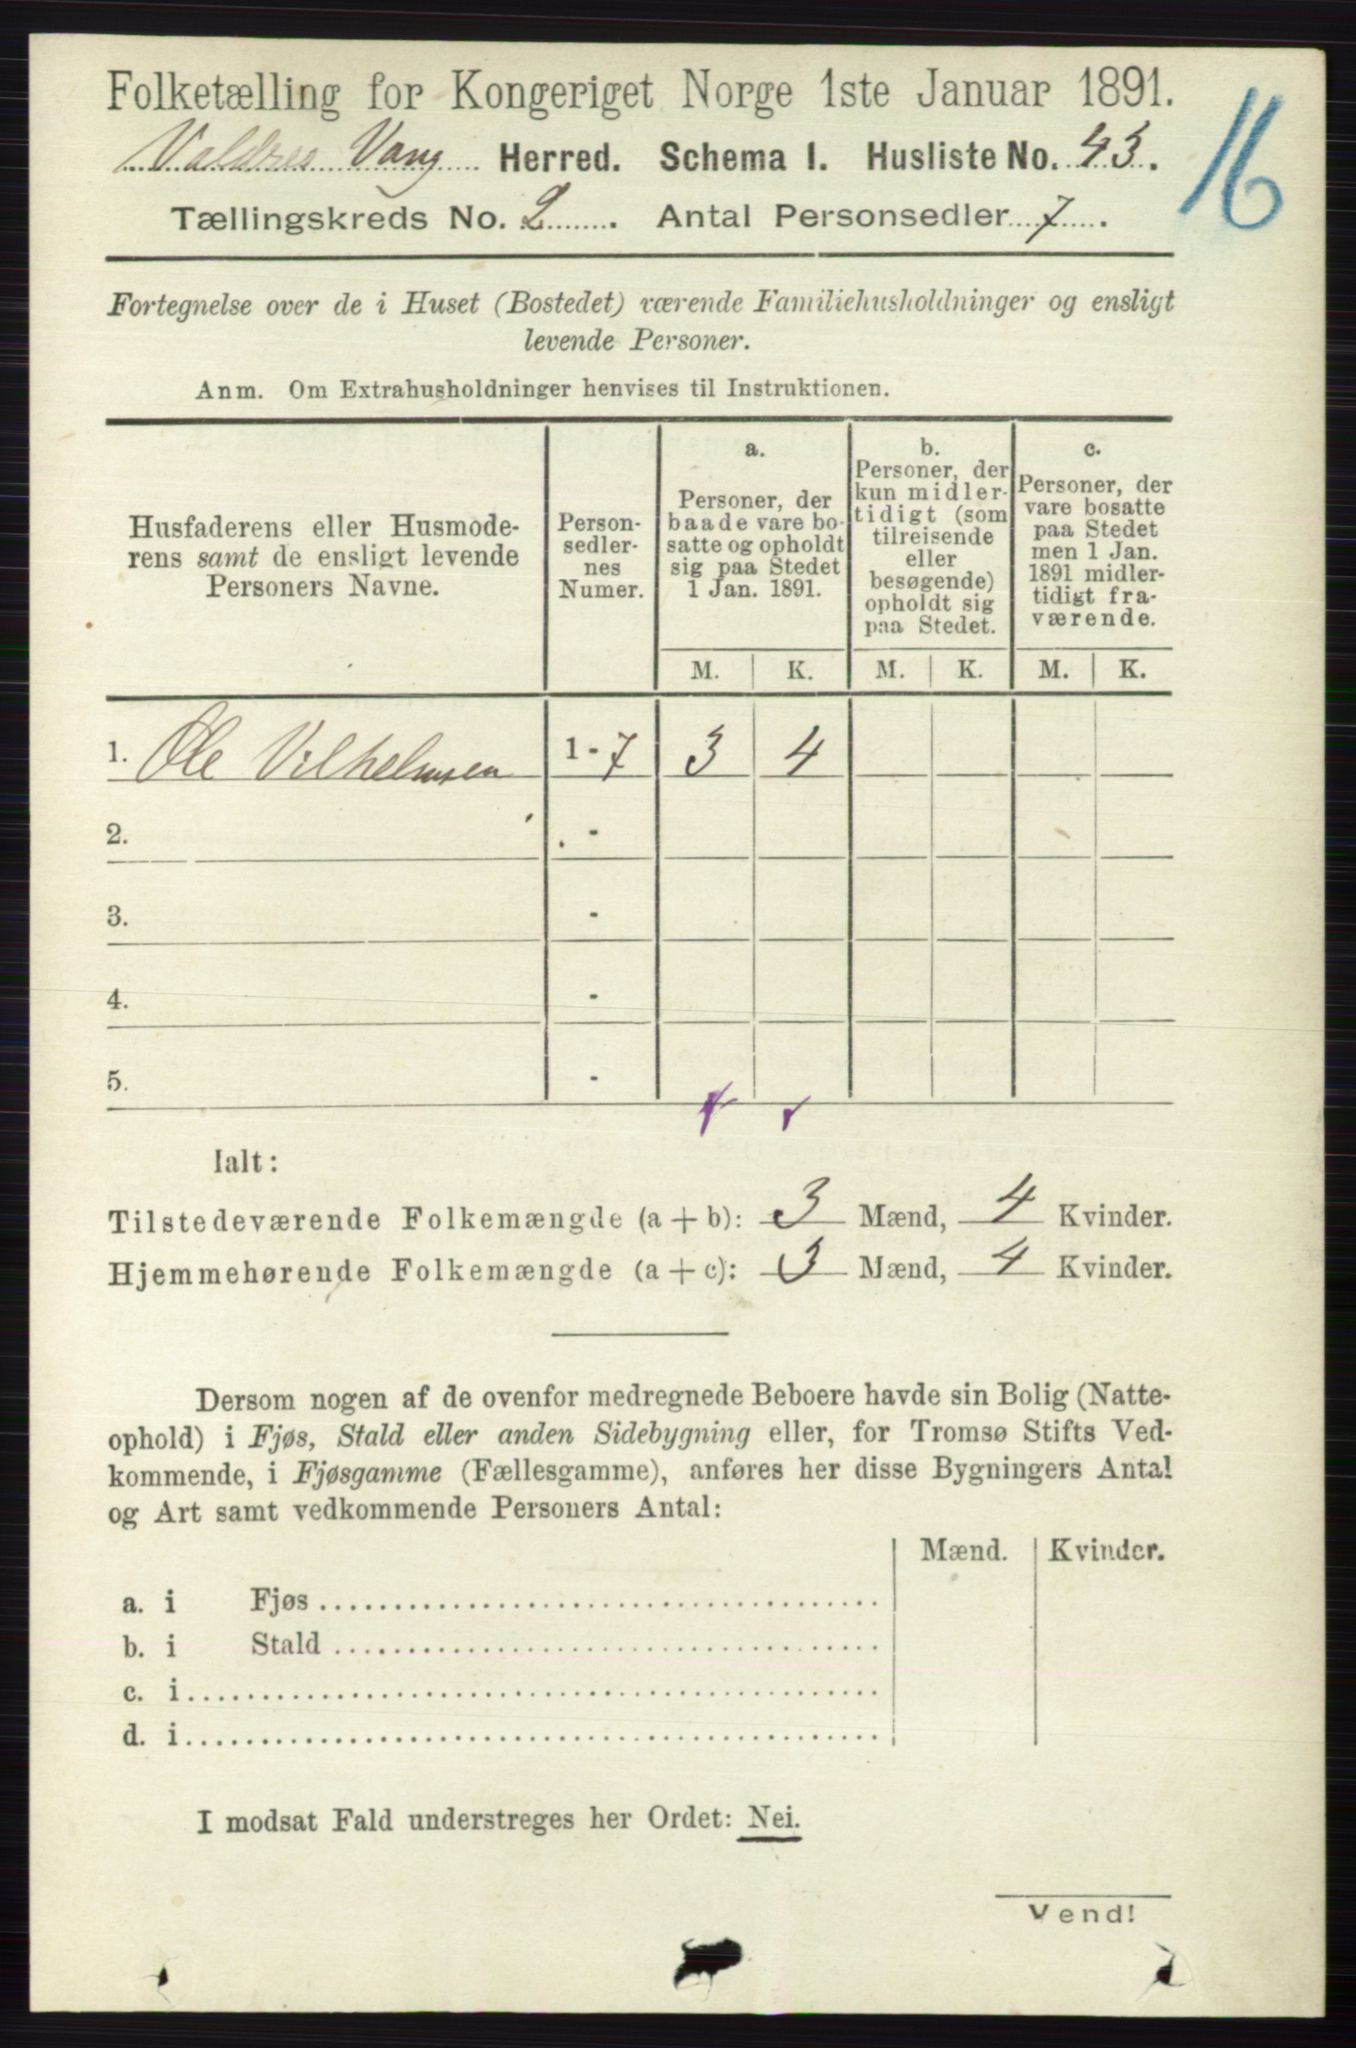 Folketælling for Kongeriget Norge 1ste Januar 1891.
16
Valdres Vang Herred. Schema I. Husliste No. 43.
Tællingskreds No. 2. Antal Personsedler 7.
Fortegnelse over de i Huset (Bostedet) værende Familiehusholdninger og ensligt
levende Personer.
Anm. Om Extrahusholdninger henvises til Instruktionen.
Husfaderens eller Husmode-
rens samt de ensligt levende
Personers Navne.
Person-
sedler-
nes
Numer.
a.
Personer, der
baade vare bo-
satte og opholdt
sig paa Stedet
1 Jan. 1891.
b.
Personer, der
kun midler-
tidigt (som
tilreisende
eller
besøgende)
opholdt sig
paa Stedet.
c.
Personer, der
vare bosatte
paa Stedet
men 1 Jan.
1891 midler-
tidigt fra-
værende.
M. K. M. K. M. K.
1. Ole Vilhelmsen 1 - 7 3 4
2. -
3. -
4. -
5. -
Ialt:
Tilstedeværende Folkemængde (a + b): 3 Mænd, 4 Kvinder.
Hjemmehørende Folkemængde (a + c): 3 Mænd, 4 Kvinder.
Dersom nogen af de ovenfor medregnede Beboere havde sin Bolig (Natte-
ophold) i Fjøs, Stald eller anden Sidebygning eller, for Tromsø Stifts Ved-
kommende, i Fjøsgamme (Fællesgamme), anføres her disse Bygningers Antal
og Art samt vedkommende Personers Antal:
Mænd. Kvinder.
a. i Fjøs
b. i Stald
c. i
d. i
I modsat Fald understreges her Ordet: Nei.
Vend!